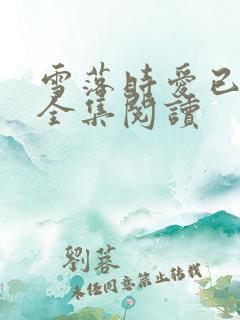 雪落時愛已
全集閱讀
劉蓉
未經同意禁止轉載